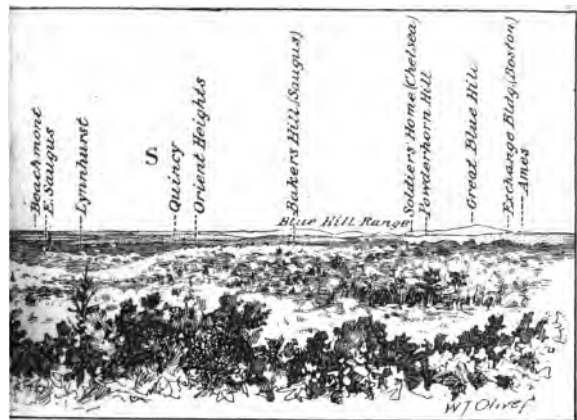 Beachmont
E. Saugus
Lynnhurst
S
Quincy
Orient Heights
Bakers Hill (Saugus)
Blue Hill Range
Soldiers' Home (Chelsea)
Powderhorn Hill
Great Blue Hill
Exchange Bldg. (Boston)
Ames
W T Oliver